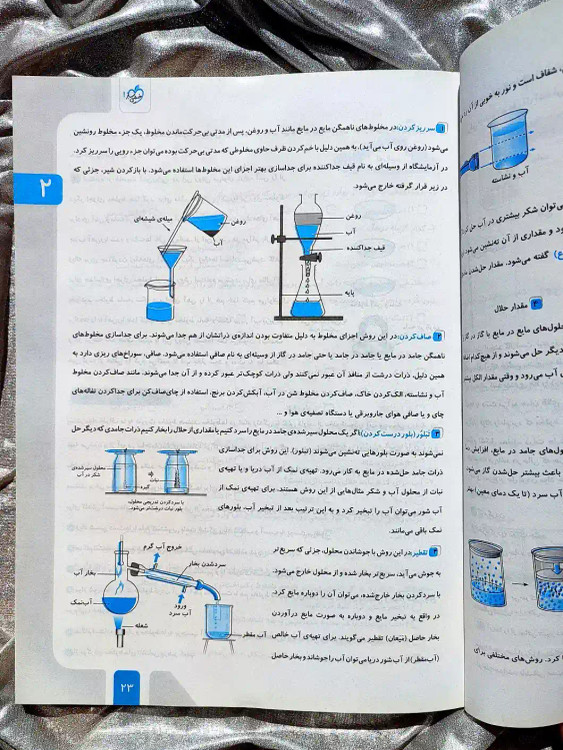 ۱ سرریز کردن: در مخلوط‌های ناهمگن مایع در مایع مانند آب و روغن، پس از مدتی بی‌حرکت‌ماندن مخلوط، یک جزء مخلوط رونشین
می‌شود (روغن روی آب می‌آید). به همین دلیل با خم‌کردن ظرف حاوی مخلوطی که مدتی بی‌حرکت بوده می‌توان جزء رویی را سرریز کرد.
در آزمایشگاه از وسیله‌ای به نام قیف جداکننده برای جداسازی بهتر اجزای این مخلوط‌ها استفاده می‌شود. با بازکردن شیر، جزئی که
در زیر قرار گرفته خارج می‌شود.
۲
میله‌ی شیشه‌ای
روغن
آب
روغن
آب
قیف جداکننده
پایه
۲ صاف‌کردن: در این روش اجزای مخلوط به دلیل متفاوت بودن اندازه‌ی ذراتشان از هم جدا می‌شوند. برای جداسازی مخلوط‌های
ناهمگن جامد در مایع یا جامد در جامد یا حتی جامد در گاز از وسیله‌ای به نام صافی استفاده می‌شود. صافی، سوراخ‌های ریزی دارد به
همین دلیل، ذرات درشت از منافذ آن عبور نمی‌کنند ولی ذرات کوچک‌تر عبور کرده و از آن جدا می‌شوند. مانند صاف‌کردن مخلوط
آب و نشاسته، الک‌کردن خاک، صاف‌کردن مخلوط شن در آب، آبکش‌کردن برنج، استفاده از چای‌صاف‌کن برای جداکردن تفاله‌های
چای و یا صافی هوای جاروبرقی یا دستگاه تصفیه‌ی هوا و ...
۳ تبلور (بلور درست کردن): اگر یک محلول سیرشده‌ی جامد در مایع را سرد کنیم یا مقداری از حلال را بخار کنیم ذرات جامدی که دیگر حل
نمی‌شوند به صورت بلورهایی ته‌نشین می‌شوند (تبلور). این روش برای جداسازی
ذرات جامد حل‌شده در مایع به کار می‌رود. تهیه‌ی نمک از آب دریا و یا تهیه‌ی
نبات از محلول آب و شکر مثال‌هایی از این روش هستند. برای تهیه‌ی نمک از
آب شور می‌توان آب را تبخیر کرد و به این ترتیب بعد از تبخیر آب، بلورهای
نمک باقی می‌مانند.
محلول سیرشده‌ی
شکر در آب
نبات
گیره
با سردکردن تدریجی محلول،
بلور نبات درشت‌تر می‌شود.
۴ تقطیر: در این روش با جوشاندن محلول، جزئی که سریع‌تر
به جوش می‌آید، سریع‌تر بخار شده و از محلول خارج می‌شود.
با سردکردن بخار خارج‌شده، می‌توان آن را دوباره مایع کرد.
در واقع به تبخیر مایع و دوباره به صورت مایع درآوردن
بخار حاصل (میعان) تقطیر می‌گویند. برای تهیه‌ی آب خالص
(آب مقطر) از آب شور دریا می‌توان آب را جوشاند و بخار حاصل
خروج آب گرم
سردشدن بخار
بخار آب
آب‌نمک
ورود
آب سرد
شعله
آب مقطر
۲۳
شفاف است و نور به خوبی از آن
آب و نشاسته
می‌توان شکر بیشتری در آب حل
د و مقداری از آن ته‌نشین می‌شود
گفته می‌شود. مقدار حل‌شدن
۳ مقدار حلال
دیگر حل می‌شوند و از هیچ‌کدام
باعث بیشتر حل‌شدن گاز می‌شود
آب سرد (تا یک دمای معین)
کرد. روش‌های مختلفی برای